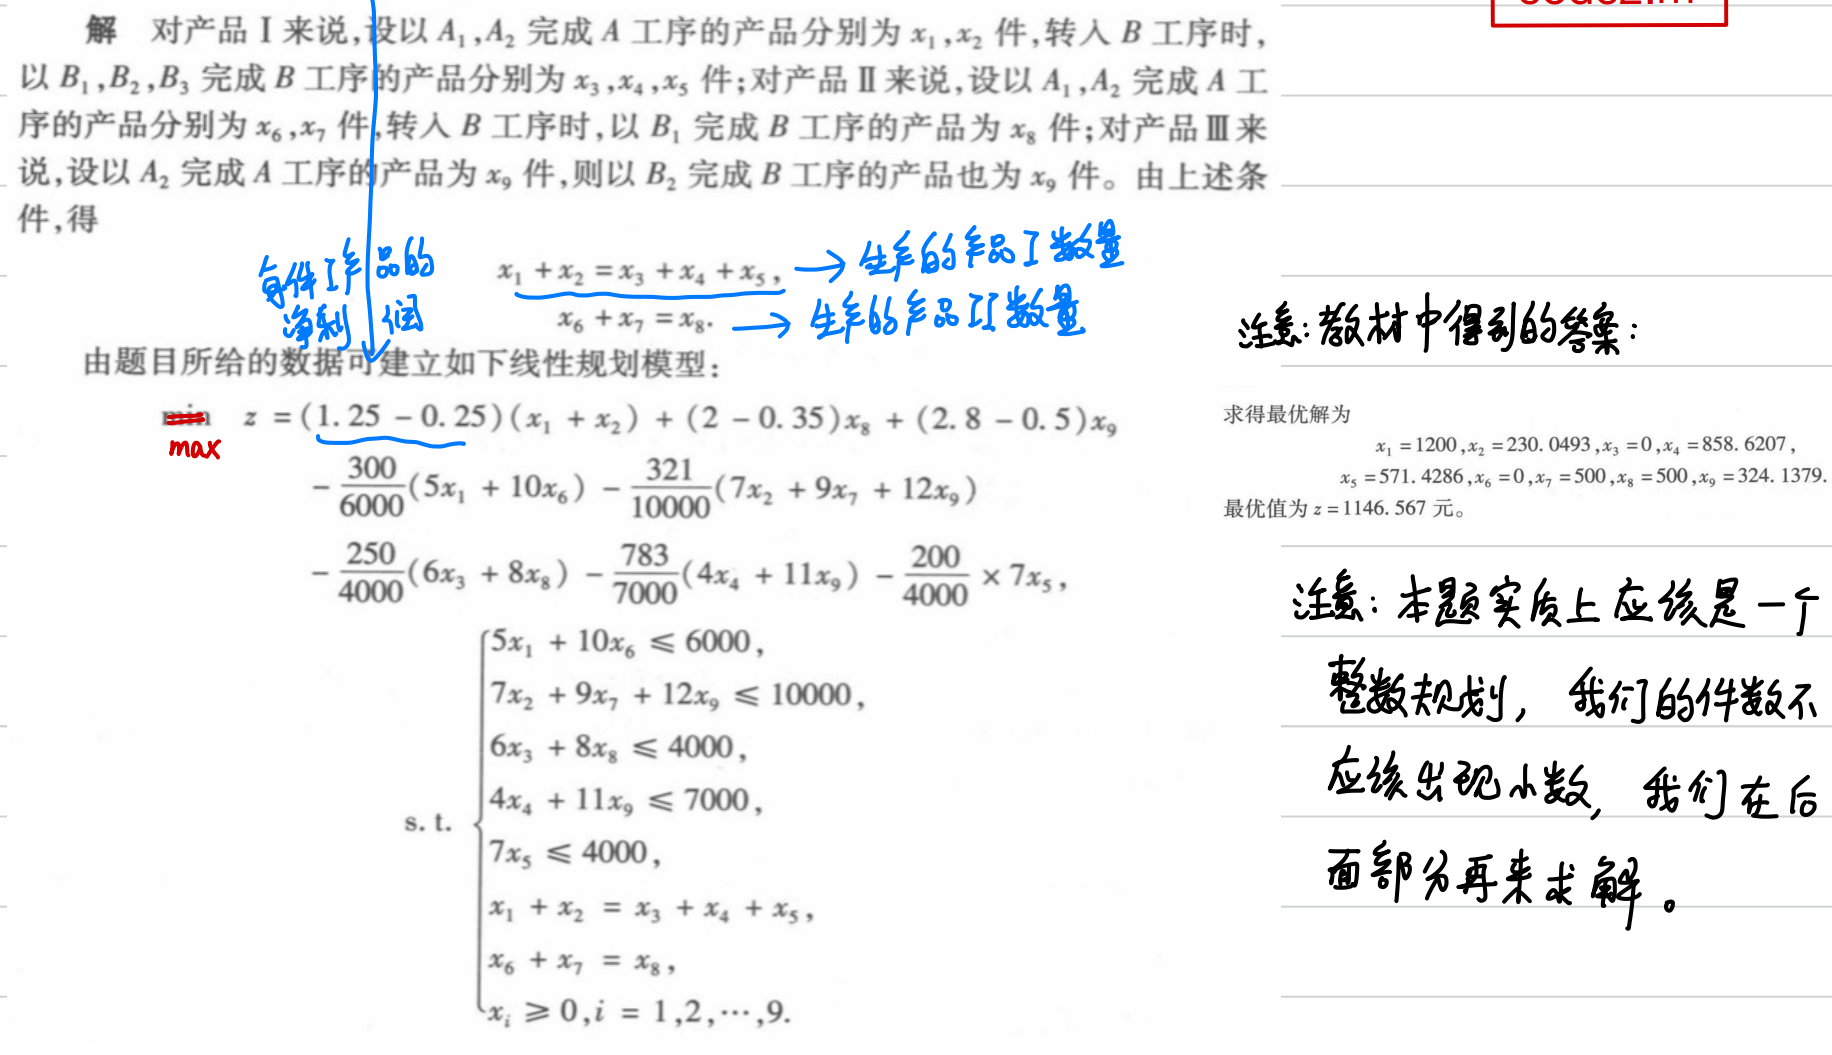 解 对产品Ⅰ来说,设以 A₁,A₂ 完成 A 工序的产品分别为 x₁,x₂ 件,转入 B 工序时,
以 B₁,B₂,B₃ 完成 B 工序的产品分别为 x₃,x₄,x₅ 件;对产品Ⅱ来说,设以 A₁,A₂ 完成 A 工
序的产品分别为 x₆,x₇ 件,转入 B 工序时,以 B₁ 完成 B 工序的产品为 x₈ 件;对产品Ⅲ来
说,设以 A₂ 完成 A 工序的产品为 x₉ 件,则以 B₂ 完成 B 工序的产品也为 x₉ 件。由上述条
件,得
每件I产品的
净利润
x₁ + x₂ = x₃ + x₄ + x₅, → 生产的产品I数量
x₆ + x₇ = x₈. → 生产的产品II数量
由题目所给的数据可建立如下线性规划模型:
min z = (1.25 − 0.25)(x₁ + x₂) + (2 − 0.35)x₈ + (2.8 − 0.5)x₉
max
− 300/6000(5x₁ + 10x₆) − 321/10000(7x₂ + 9x₇ + 12x₉)
− 250/4000(6x₃ + 8x₈) − 783/7000(4x₄ + 11x₉) − 200/4000 × 7x₅,
s.t.
5x₁ + 10x₆ ≤ 6000,
7x₂ + 9x₇ + 12x₉ ≤ 10000,
6x₃ + 8x₈ ≤ 4000,
4x₄ + 11x₉ ≤ 7000,
7x₅ ≤ 4000,
x₁ + x₂ = x₃ + x₄ + x₅,
x₆ + x₇ = x₈,
xᵢ ≥ 0,i = 1,2,⋯,9.
注意:教材中得到的答案:
求得最优解为
x₁ = 1200,x₂ = 230.0493,x₃ = 0,x₄ = 858.6207,
x₅ = 571.4286,x₆ = 0,x₇ = 500,x₈ = 500,x₉ = 324.1379.
最优值为 z = 1146.567 元。
注意:本题实质上应该是一个
整数规划,我们的件数不
应该出现小数,我们在后
面部分再来求解。